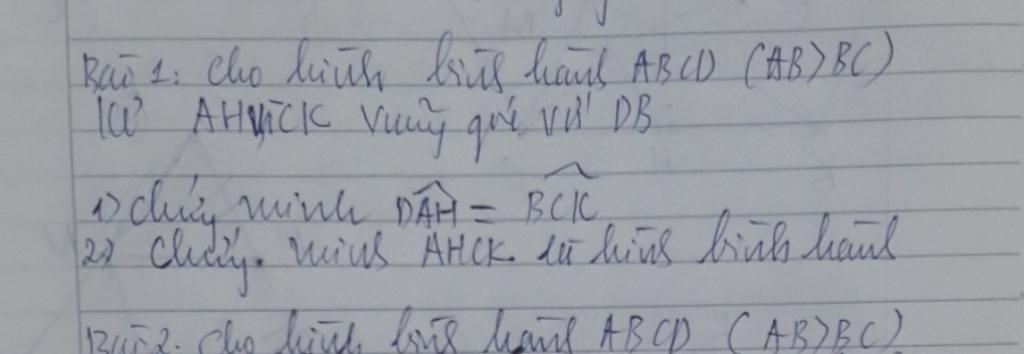 Bài 1: Cho hình bình hành ABCD (AB>BC)
Kẻ AH và CK vuông góc với DB
1) chứng minh DAH = BCK
2) Chứng minh AHCK là hình bình hành
Bài 2. Cho hình bình hành ABCD (AB>BC)